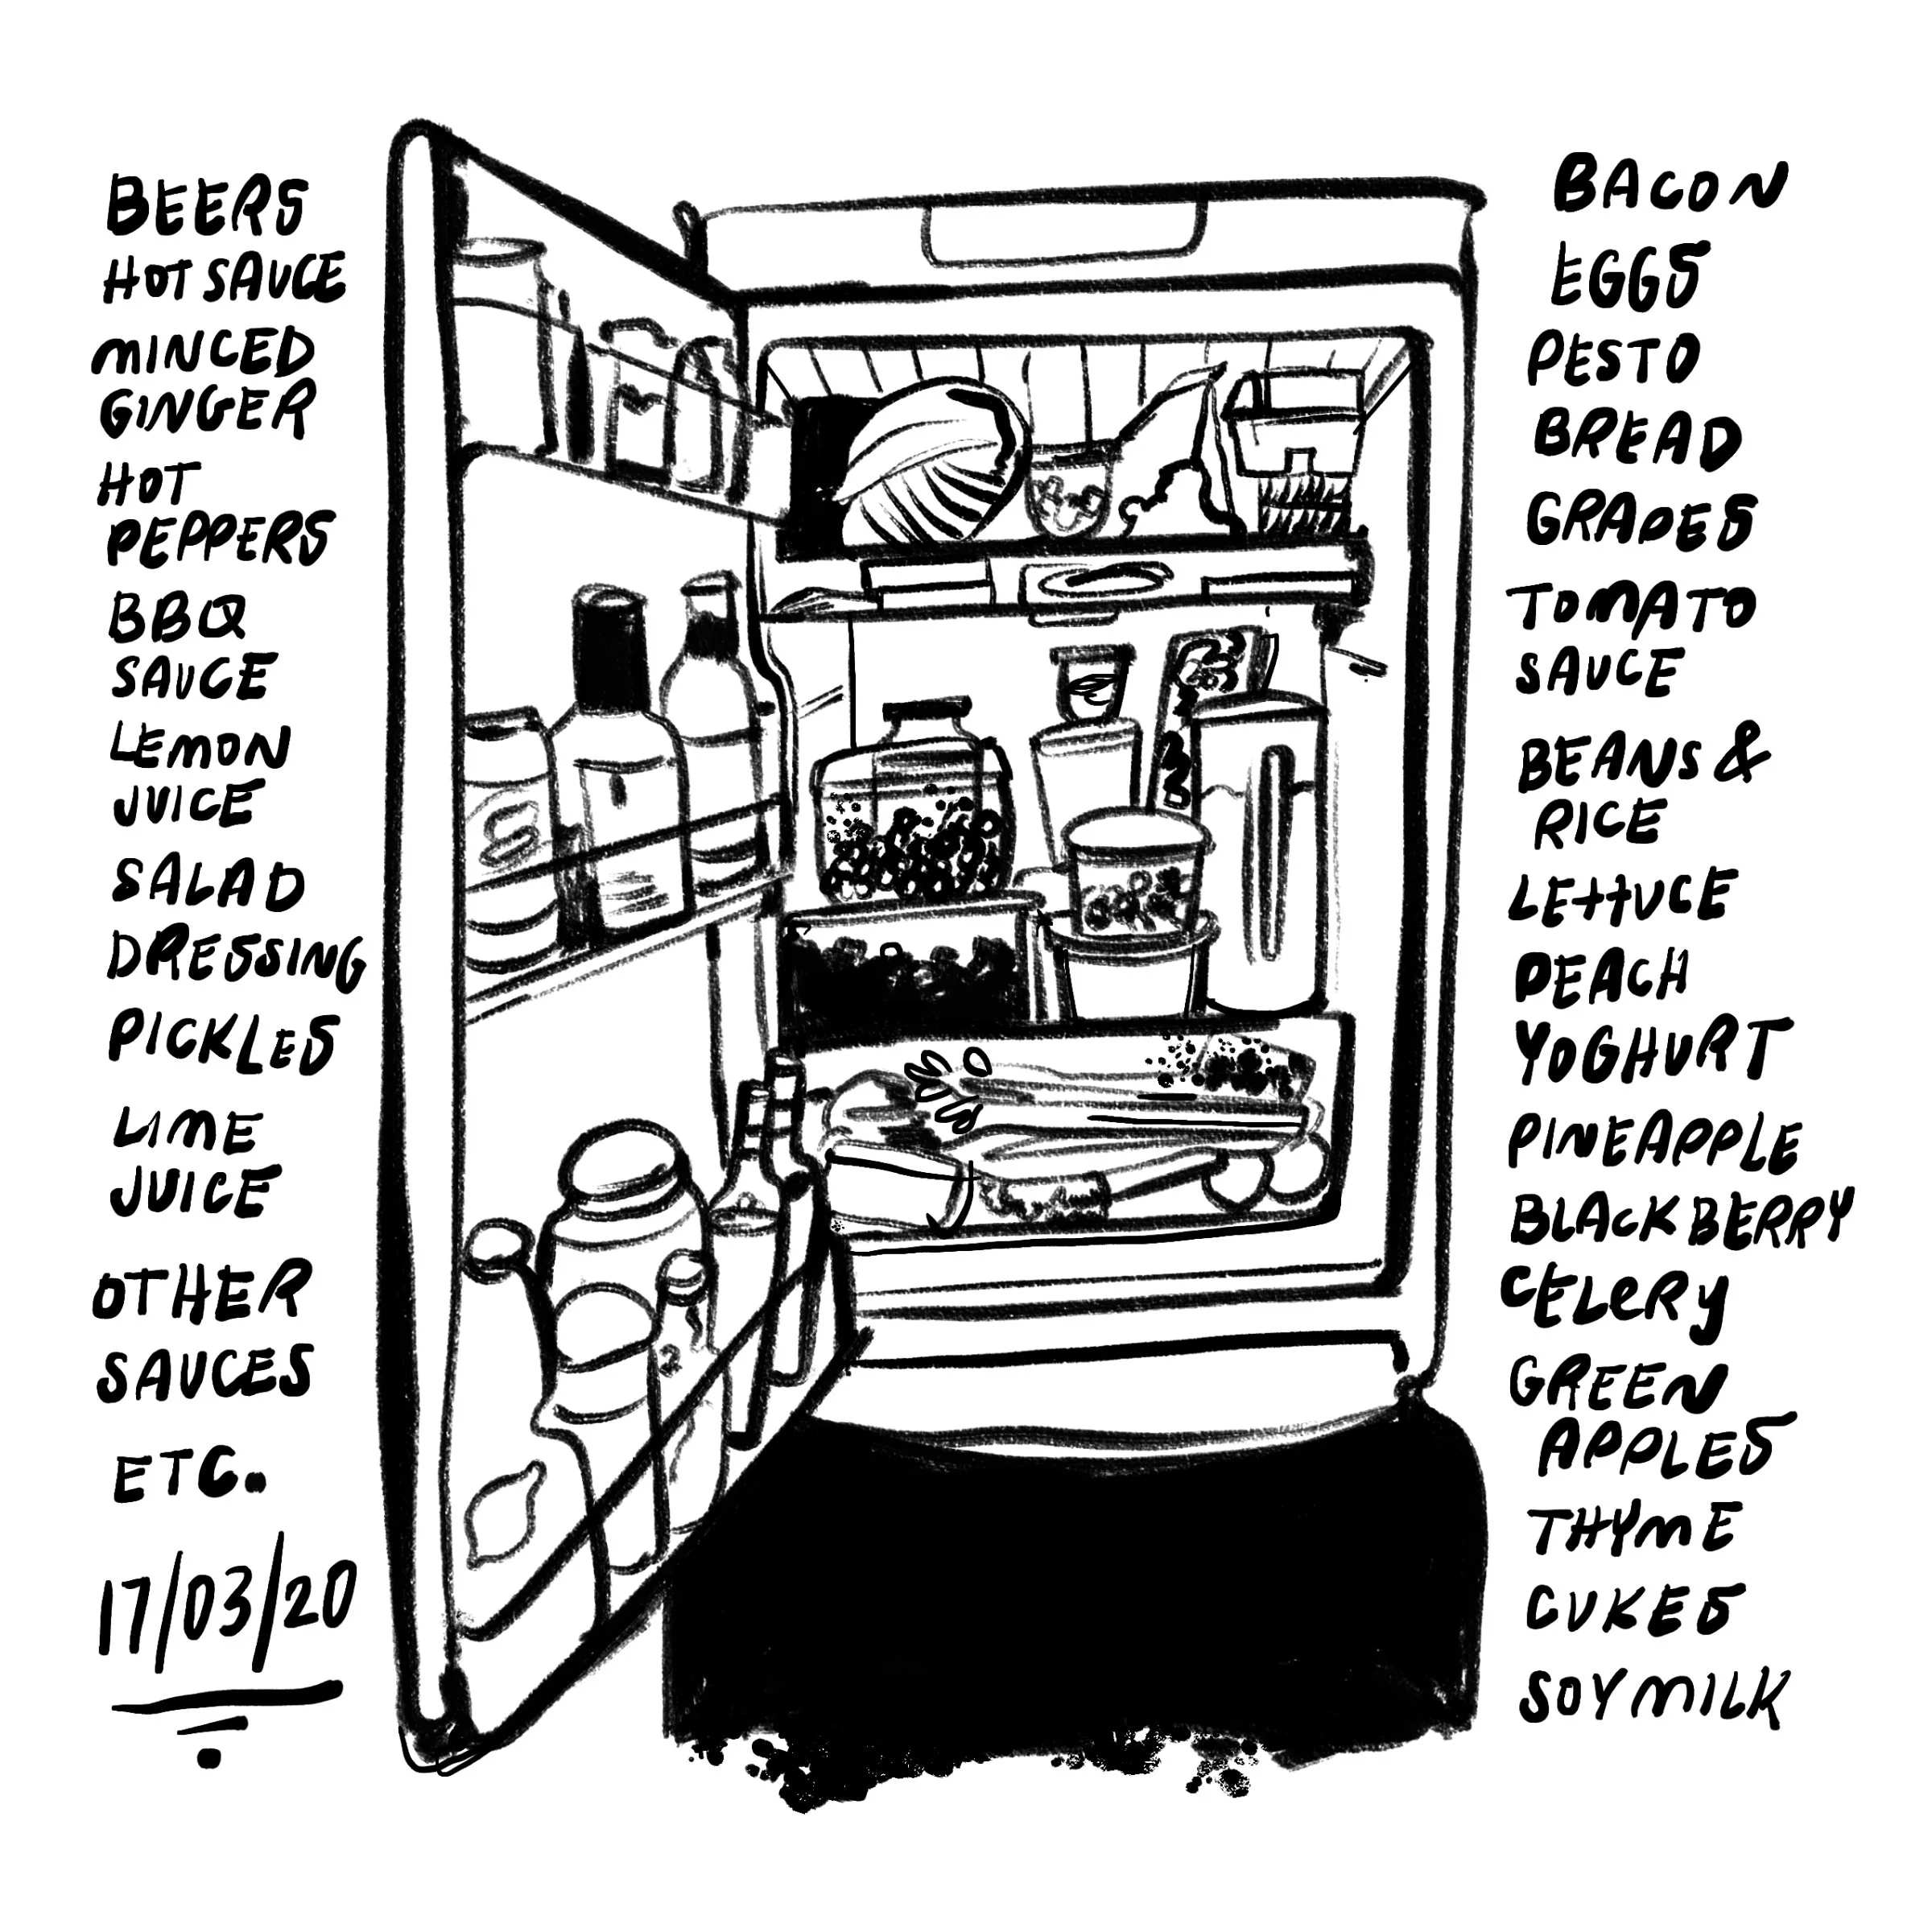 BEERS
HOT SAUCE
MINCED
GINGER
HOT
PEPPERS
BBQ
SAUCE
LEMON
JUICE
SALAD
DRESSING
PICKLES
LIME
JUICE
OTHER
SAUCES
ETC.
17/03/20
BACON
EGGS
PESTO
BREAD
GRAPES
TOMATO
SAUCE
BEANS &
RICE
LETTUCE
PEACH
YOGHURT
PINEAPPLE
BLACKBERRY
CELERY
GREEN
APPLES
THYME
CUKES
SOY MILK